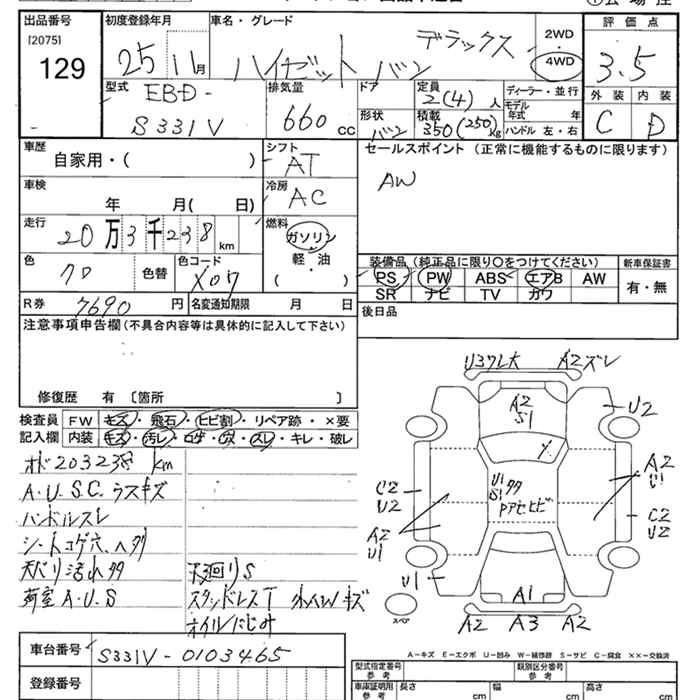 出品番号
[2075]
129
初度登録年月
25 11月
車名・グレード
ハイゼット バン デラックス
2WD
4WD
評価点
3.5
外装 内装
C D
型式
EBD-
S331V
排気量
660 cc
ドア
形状
バン
定員
2(4)人
積載
350(250)kg
ディーラー・並行
モデル
年式 年
ハンドル 左・右
車歴
自家用・( )
シフト
AT
セールスポイント (正常に機能するものに限ります)
AW
車検
年 月( 日)
冷房
AC
走行
20万3千238km
燃料
ガソリン
軽・油
( )
色
クロ
色替
色コード
X07
装備品(純正品に限り〇をつけてください)
PS PW ABS エアB AW
SR ナビ TV カワ
新車保証書
有・無
R券
7690円
名変通知期限 月 日
後日品
注意事項申告欄(不具合内容等は具体的に記入して下さい)
修復歴 有 〔箇所 〕
検査員
記入欄
FW キズ・飛石・ヒビ割・リペア跡・×要
内装 キズ・汚レ・コゲ・穴・スレ・キレ・破レ
オド203238km
A.U.S.C. ラスキズ
ハンドルスレ
シートコゲ穴、ヘタリ
天バリ汚れタタ
荷室A.U.S
下廻りS
スタッドレスT 外入Wキズ
オイルにじみ
U3クレ大
A2ズレ
A2
S1
U2
U1
S1タタ
Pアセヒビ
C2
U2
A2
U1
A2
U1
C2
U2
U1
A1
A2 A3 A2
スペア
A-キズ E-エクボ U-凹み W-補修跡 S-サビ C-腐食 ××-交換済
車台番号
S331V-0103465
登録番号
型式指定番号
参考
類別区分番号
参考
車庫証明用
参考
長さ cm
幅 cm
高さ cm